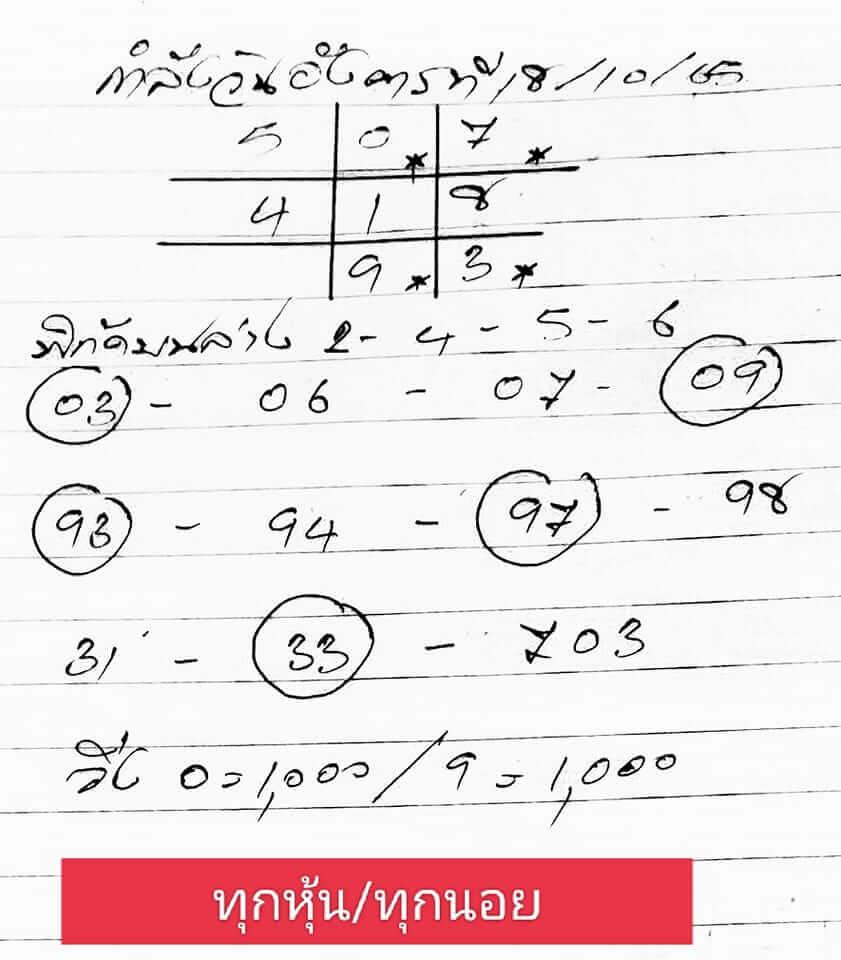 กำลังวันอังคารที่ 18/10/65
5 0* 7*
4 1 8
9* 3*
พิกัดบนล่าง 2 - 4 - 5 - 6
03 - 06 - 07 - 09
93 - 94 - 97 - 98
31 - 33 - 703
วิ่ง 0 = 1,000 / 9 = 1,000
ทุกหุ้น/ทุกนอย